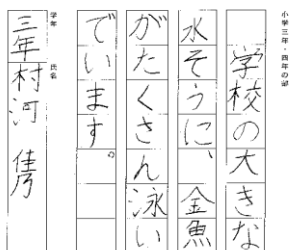 小学三年・四年の部
学校の大きな
水そうに、金魚
がたくさん泳い
でいます。
学年 氏名
三年 村河